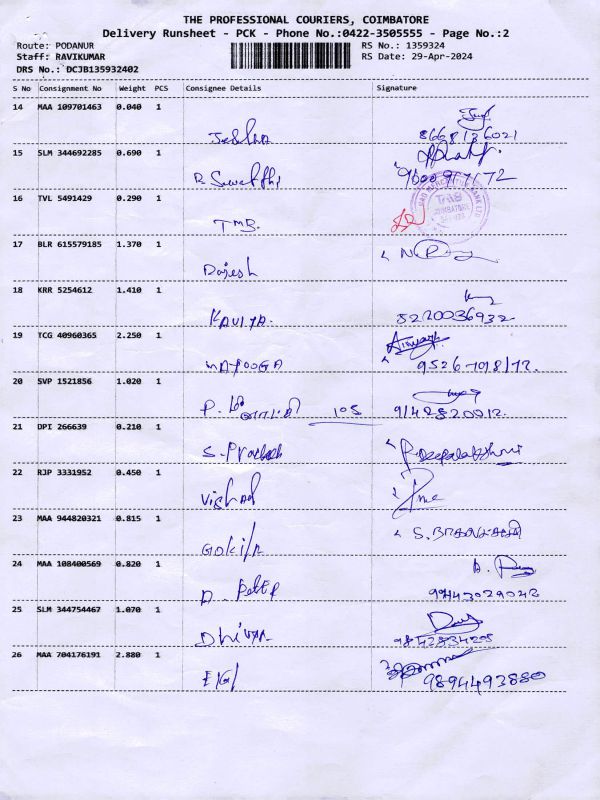 THE PROFESSIONAL COURIERS, COIMBATORE
Delivery Runsheet - PCK - Phone No.:0422-3505555 - Page No.:2
Route: PODANUR RS No.: 1359324
Staff: RAVIKUMAR RS Date: 29-Apr-2024
DRS No.: DCJB135932402
S No Consignment No Weight PCS Consignee Details Signature
14 MAA 109701463 0.040 1
8668136021
15 SLM 344692285 0.690 1
16 TVL 5491429 0.290 1
TMB.
17 BLR 615579185 1.370 1
Rajesh
18 KRR 5254612 1.410 1
KAVIYA.
19 TCG 40960365 2.250 1
20 SVP 1521856 1.020 1
P. 105
21 DPI 266639 0.210 1
S. Prakash P. Deepalakshmi
22 RJP 3331952 0.450 1
Vishal
23 MAA 944820321 0.815 1
24 MAA 108400569 0.820 1
9943029042
25 SLM 344754467 1.070 1
9842834205
26 MAA 704176191 2.880 1
9894493880